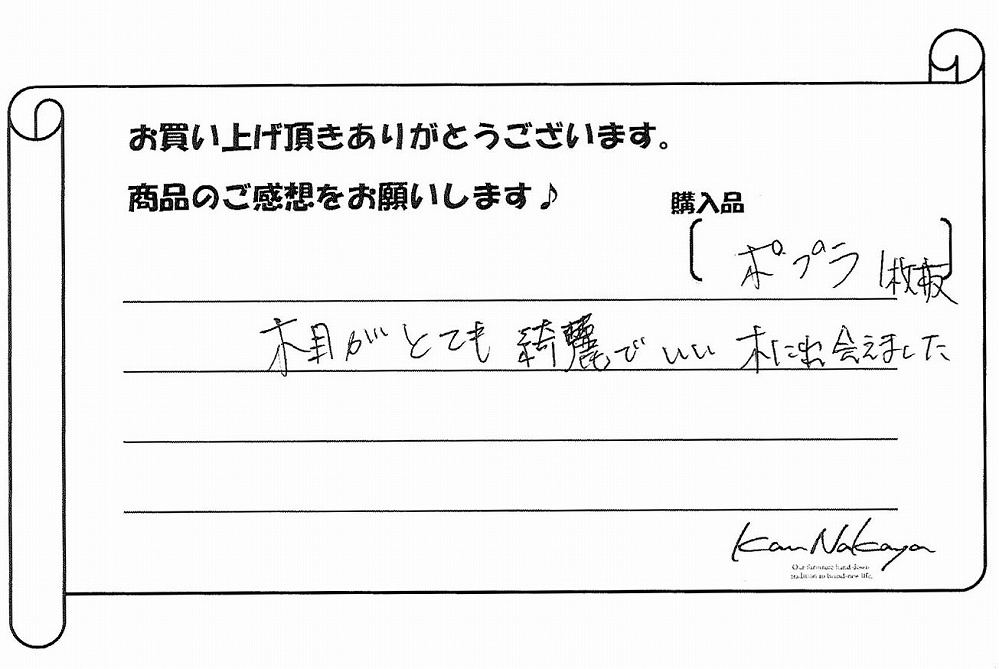 お買い上げ頂きありがとうございます。
商品のご感想をお願いします♪
購入品
ポプラ 1枚板
木目がとても綺麗でいい木に出会えました
KanNakaya
Our furniture hand-down
tradition to brand-new life.